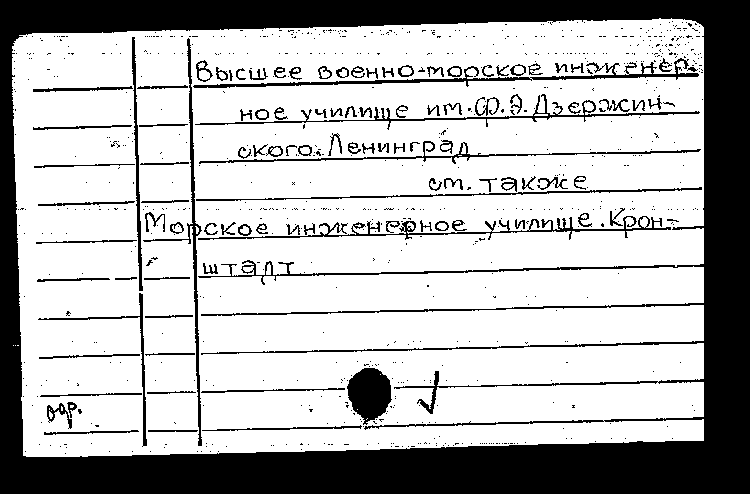 Высшее военно-морское инженер-
ное училище им. Ф.Э. Дзержин-
ского. Ленинград
см. также
Морское инженерное училище. Крон-
штадт